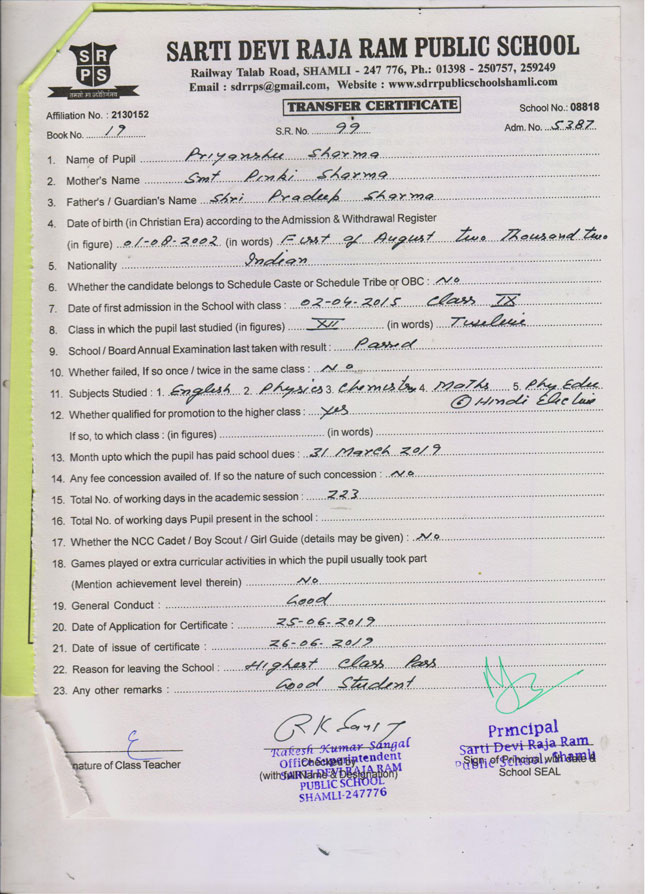 S R
P S
SARTI DEVI RAJA RAM PUBLIC SCHOOL
Railway Talab Road, SHAMLI - 247 776, Ph.: 01398 - 250757, 259249
Email : sdrrps@gmail.com, Website : www.sdrrpublicschoolshamli.com
TRANSFER CERTIFICATE
Affiliation No. : 2130152 School No.: 08818
Book No. 19 S.R. No. 99 Adm. No. 5387
1. Name of Pupil Priyanshu Sharma
2. Mother's Name Smt Pinki Sharma
3. Father's / Guardian's Name Shri Pradeep Sharma
4. Date of birth (in Christian Era) according to the Admission & Withdrawal Register
(in figure) 01-08-2002 (in words) First of August two Thousand two
5. Nationality Indian
6. Whether the candidate belongs to Schedule Caste or Schedule Tribe or OBC : No
7. Date of first admission in the School with class : 02-04-2015 Class IX
8. Class in which the pupil last studied (in figures) XII (in words) Twelve
9. School / Board Annual Examination last taken with result : Passed
10. Whether failed, If so once / twice in the same class : No
11. Subjects Studied : 1. English 2. Physics 3. Chemistry 4. Maths 5. Phy. Edu
⑥ Hindi Elective
12. Whether qualified for promotion to the higher class : Yes
If so, to which class : (in figures) (in words)
13. Month upto which the pupil has paid school dues : 31 March 2019
14. Any fee concession availed of. If so the nature of such concession : No
15. Total No. of working days in the academic session : 223
16. Total No. of working days Pupil present in the school :
17. Whether the NCC Cadet / Boy Scout / Girl Guide (details may be given) : No
18. Games played or extra curricular activities in which the pupil usually took part
(Mention achievement level therein) No
19. General Conduct : Good
20. Date of Application for Certificate : 25-06-2019
21. Date of issue of certificate : 26-06-2019
22. Reason for leaving the School : Highest Class Pass
23. Any other remarks : Good Student
nature of Class Teacher
Rakesh Kumar Sangal
Office Superintendent
Checked by
(with full Name & Designation)
SARTI DEVI RAJA RAM
PUBLIC SCHOOL
SHAMLI-247776
Principal
Sarti Devi Raja Ram
Public School, Shamli
Sign. of Principal with date &
School SEAL